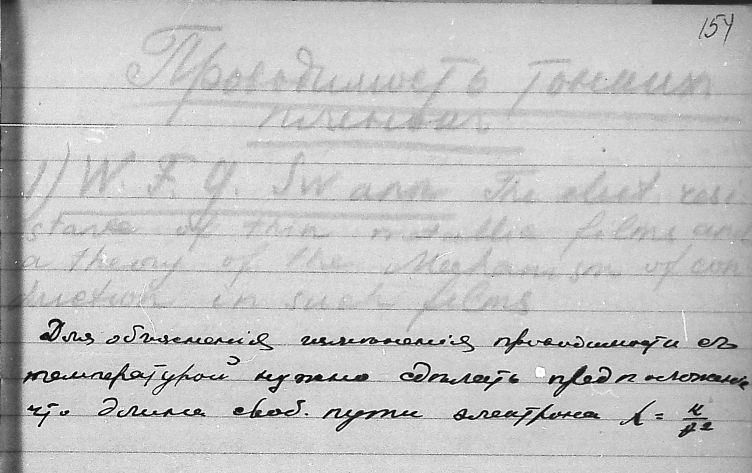 154
Проводимость тонких
пленок
1) W. F. G. Swann The elect. resi
stance of thin metallic films and
a theory of the Mechanism of con
duction in such films
Для объясненія измѣненія проводимости съ
температурой нужно сдѣлать предположеніе
что длина своб. пути электрона λ =